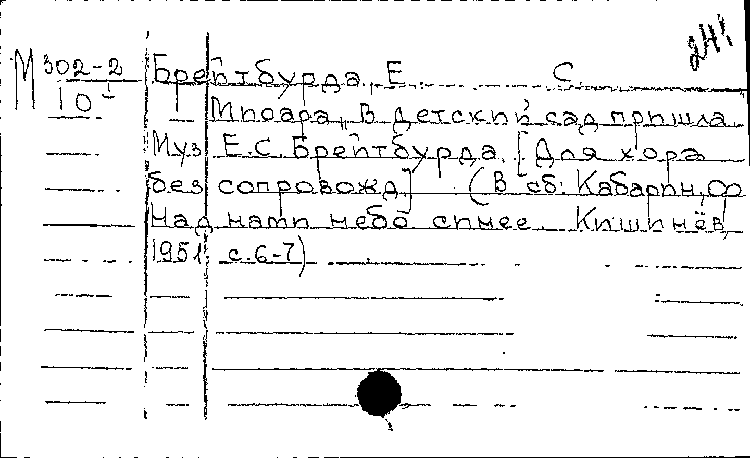 241
М 302-2 Брейтбурда, Е. С.
10 Миоара, В детский сад пришла.
Муз. Е.С. Брейтбурда. [Для хора
без сопровожд.] (В сб: Кабарин, Ф
Над нами небо синее. Кишинёв,
1951. с. 6-7)